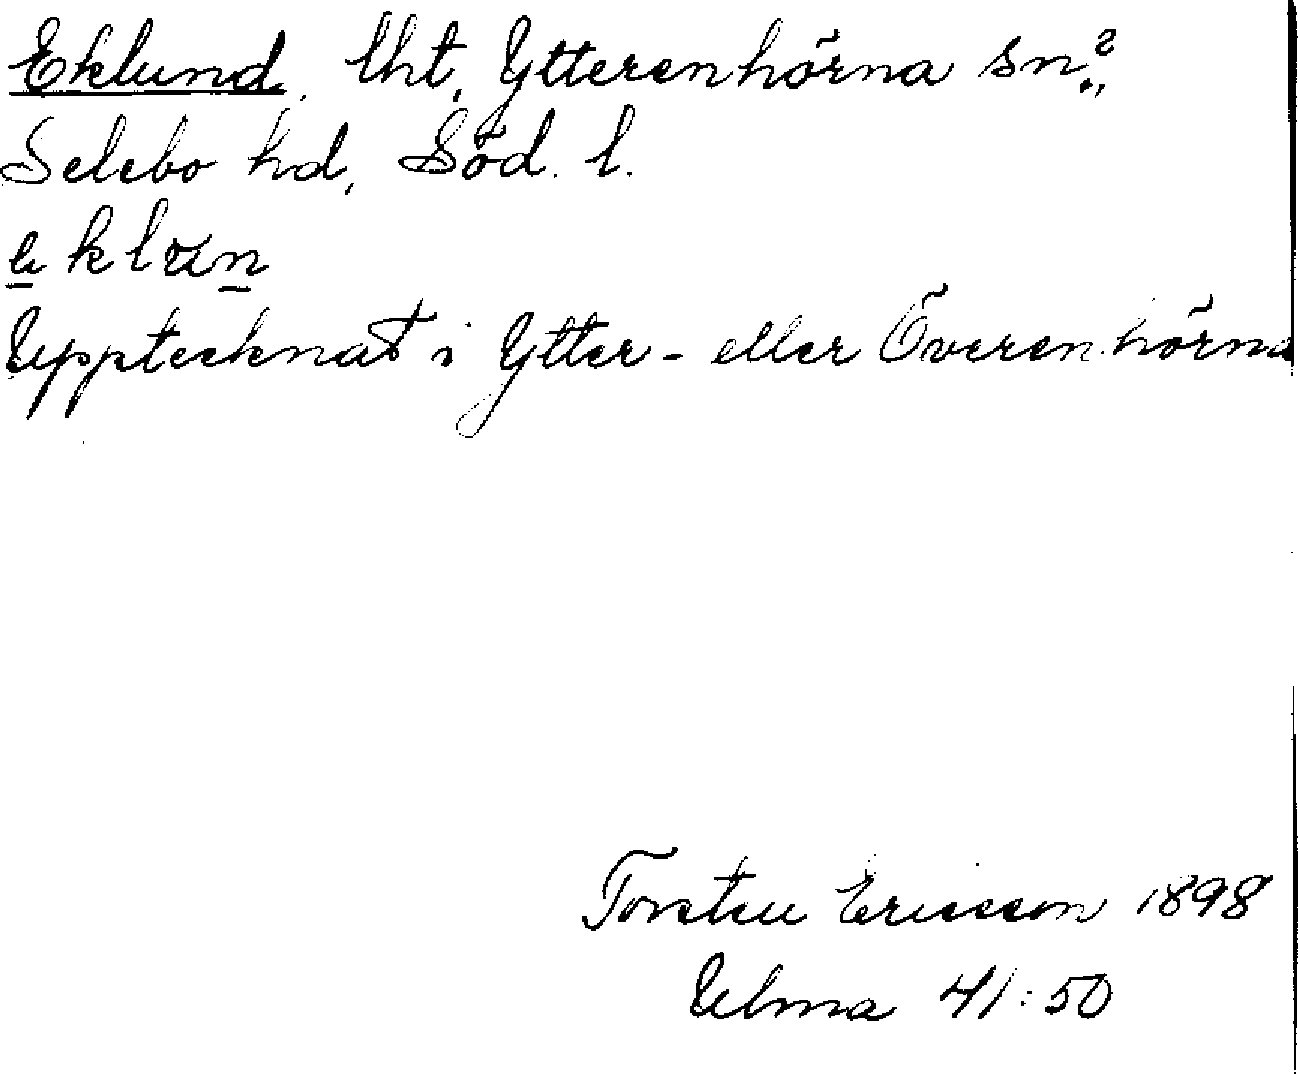 Eklund, lht, Ytterenhörna sn?,
Selebo hd, Söd. l.
Upptecknat i Ytter- eller Överenhörna
Torsten Ericsson 1898
Ulma 41:50